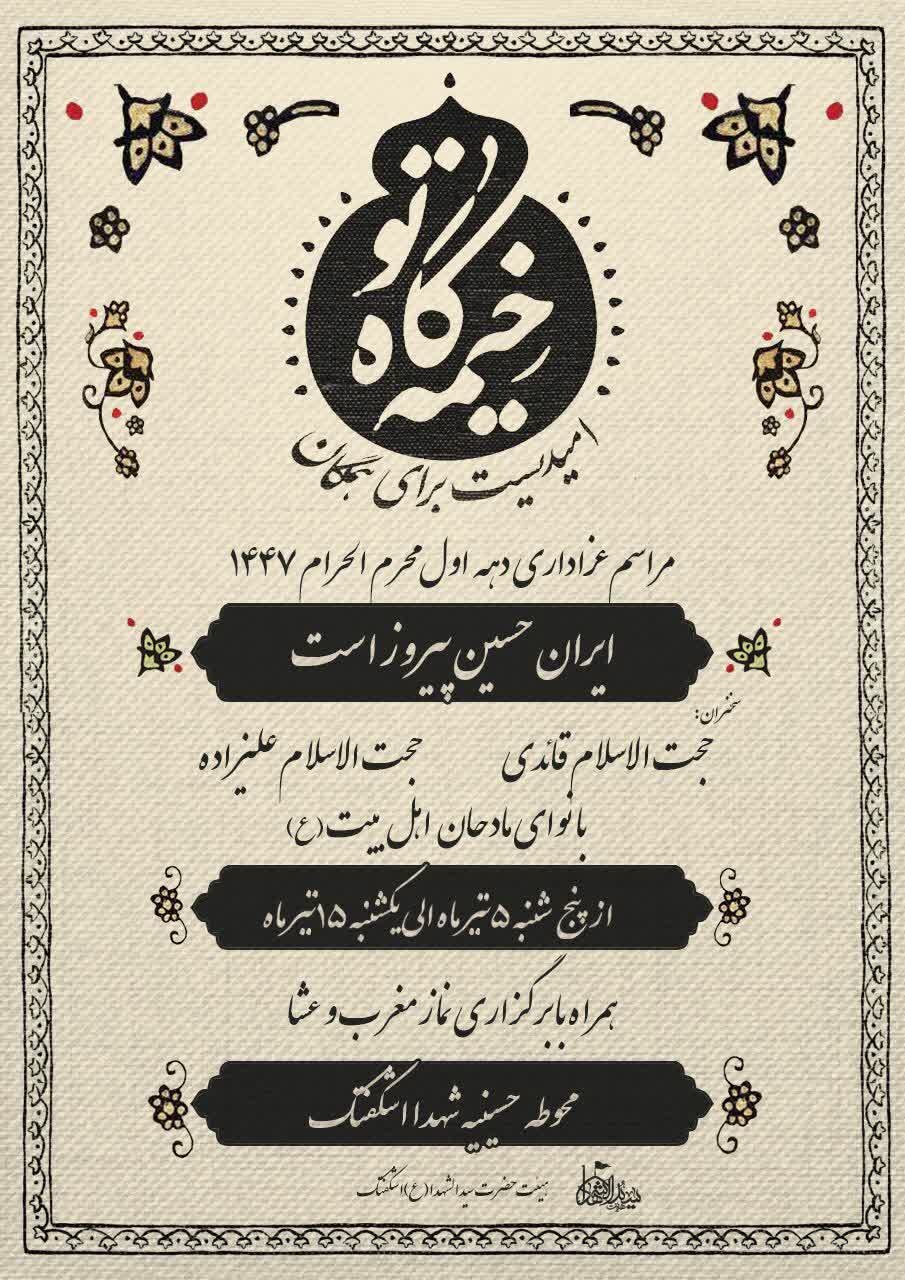 خیمه گاه تو
امیدیست برای همگان
مراسم عزاداری دهه اول محرم الحرام ۱۴۴۷
ایران حسین پیروز است
سخنران:
حجت الاسلام قائدی حجت الاسلام علیزاده
با نوای مادحان اهل بیت (ع)
از پنج شنبه ۵ تیر ماه الی یکشنبه ۱۵ تیر ماه
همراه با برگزاری نماز مغرب و عشا
محوطه حسینیه شهدا اشکفتک
هیئت حضرت سیدالشهدا (ع) اشکفتک